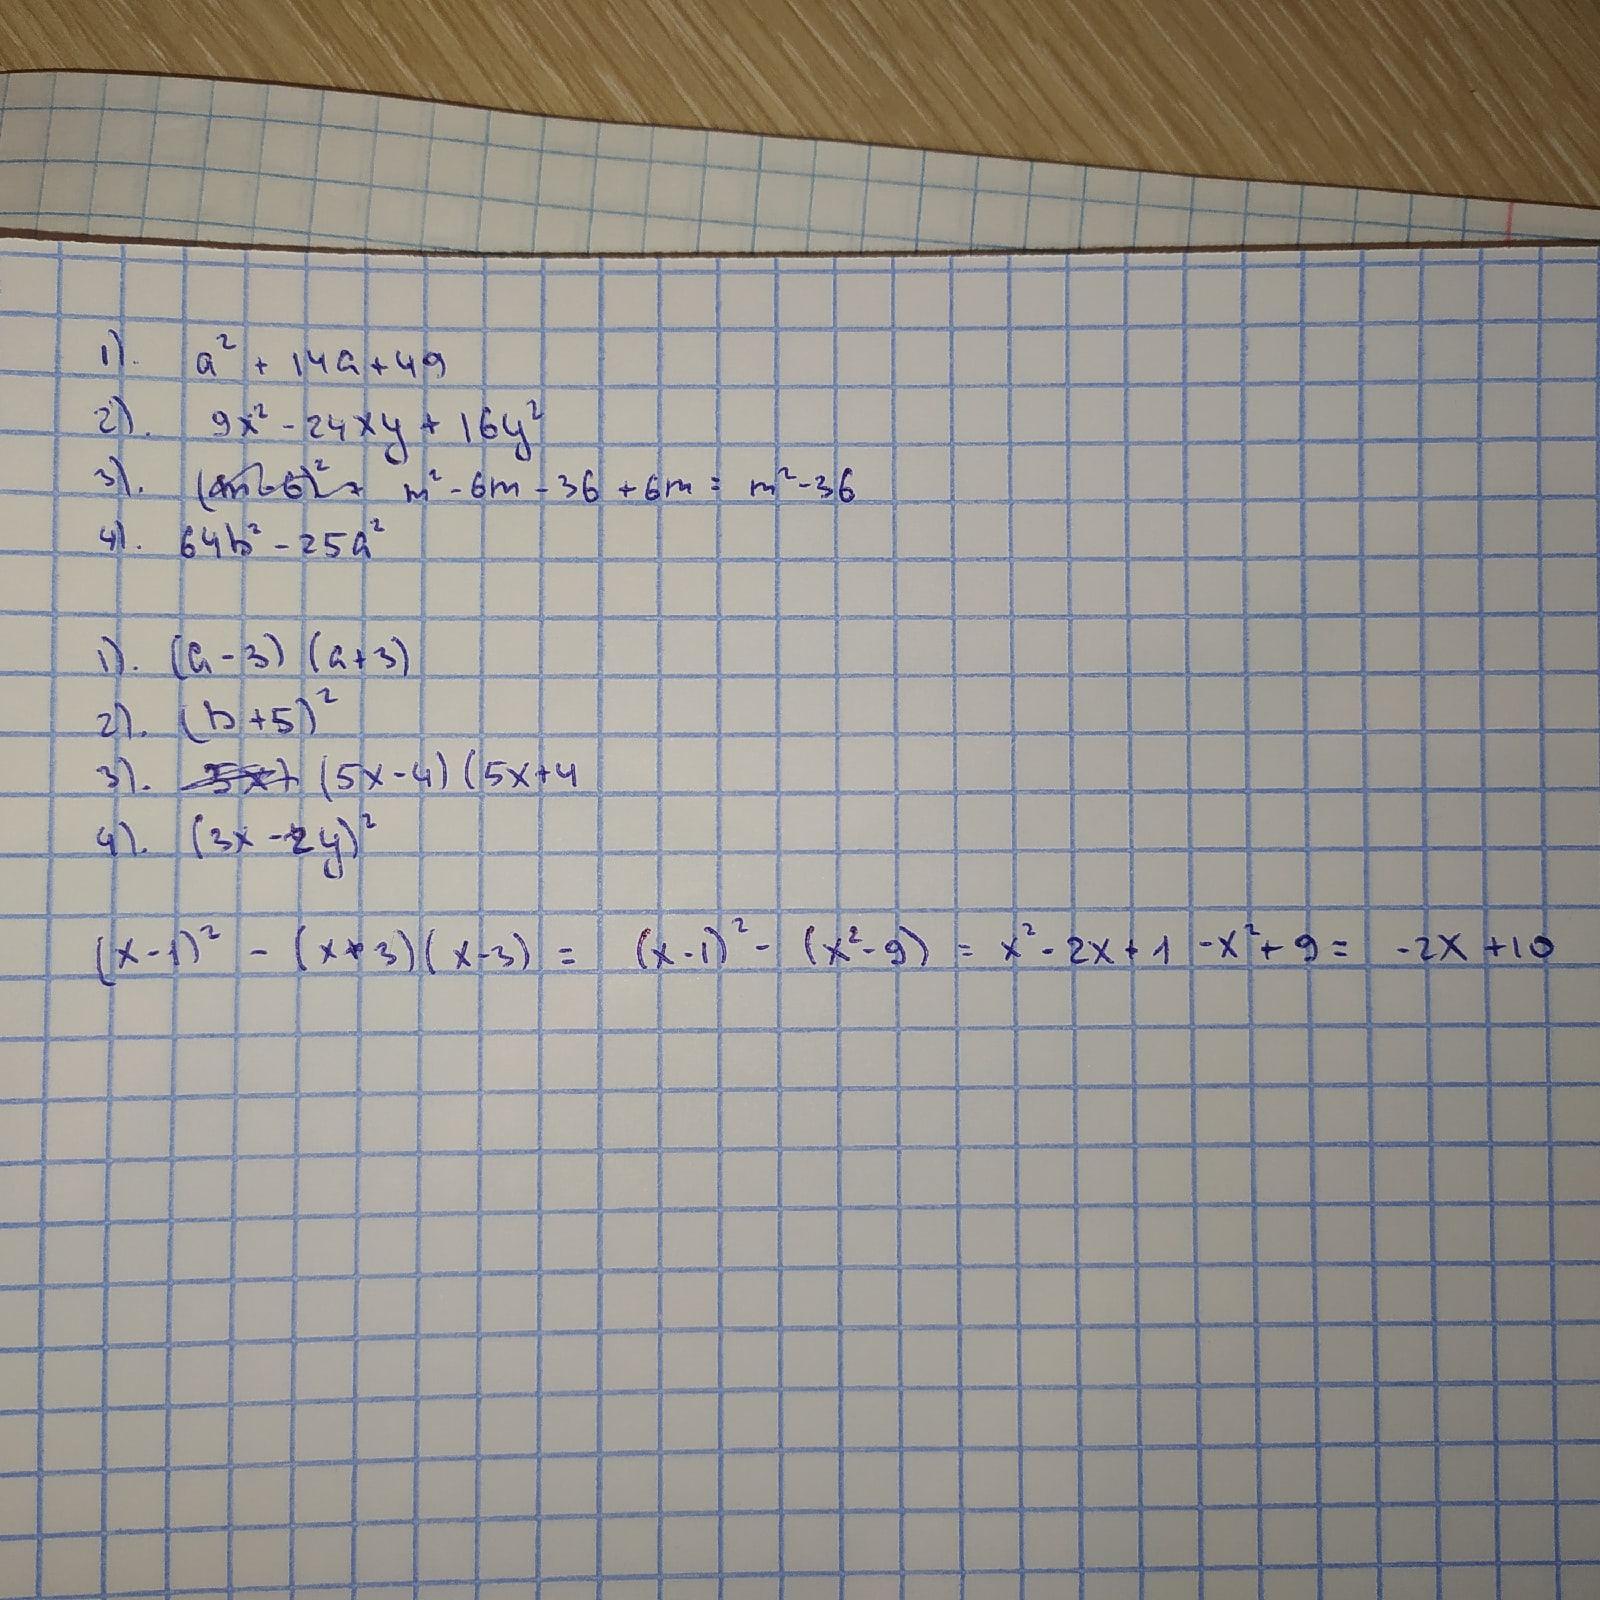 1). a² + 14a + 49
2). 9x² - 24xy + 16y²
3). m² - 6m - 36 + 6m = m² - 36
4). 64b² - 25a²
1). (a - 3) (a + 3)
2). (b + 5)²
3). (5x - 4) (5x + 4
4). (3x - 2y)²
(x - 1)² - (x + 3)(x - 3) = (x - 1)² - (x² - 9) = x² - 2x + 1 - x² + 9 = -2x + 10